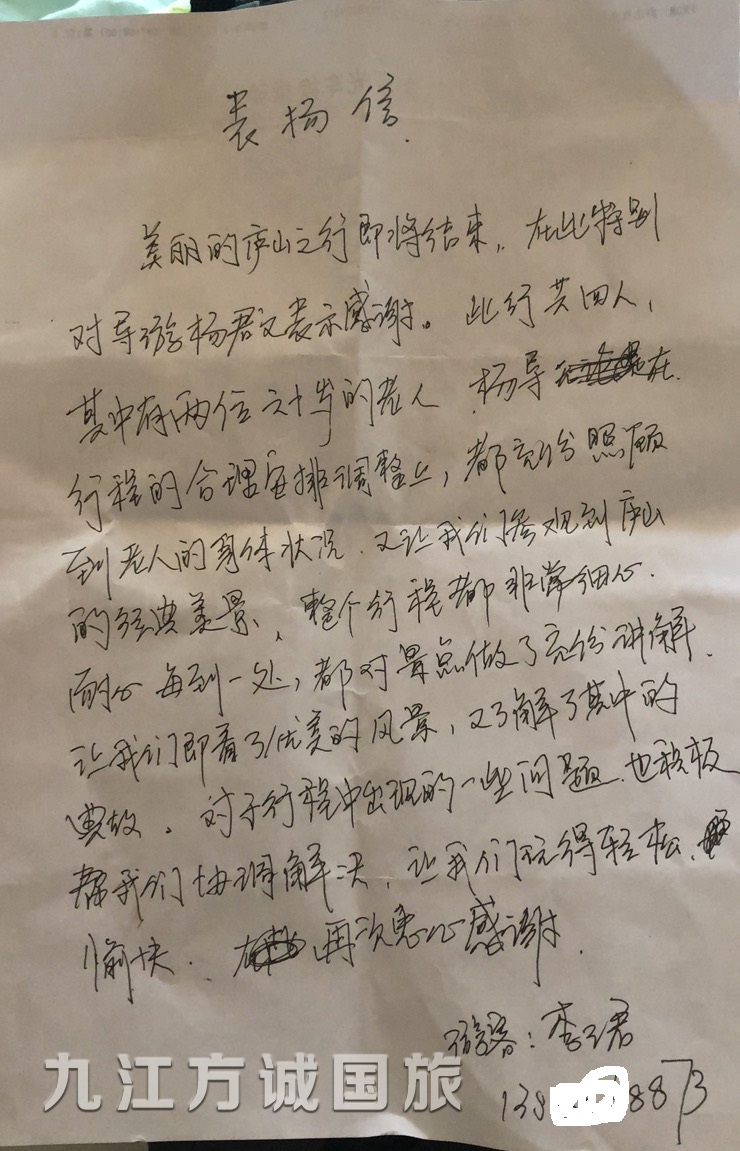 表扬信
美丽的庐山之行即将结束，在此特别
对导游杨君文表示感谢。此行共四人，
其中有两位六十岁的老人，杨导在
行程的合理安排调整上，都充份照顾
到老人的身体状况，又让我们参观到庐山
的经典美景，整个行程都非常细心、
耐心，每到一处，都对景点做了充份讲解，
让我们即看了优美的风景，又了解了其中的
典故。对于行程中出现的一些问题，也积极
帮我们协调解决，让我们玩得轻松、
愉快。再次衷心感谢。
游客：李君
138 8873
九江方诚国旅